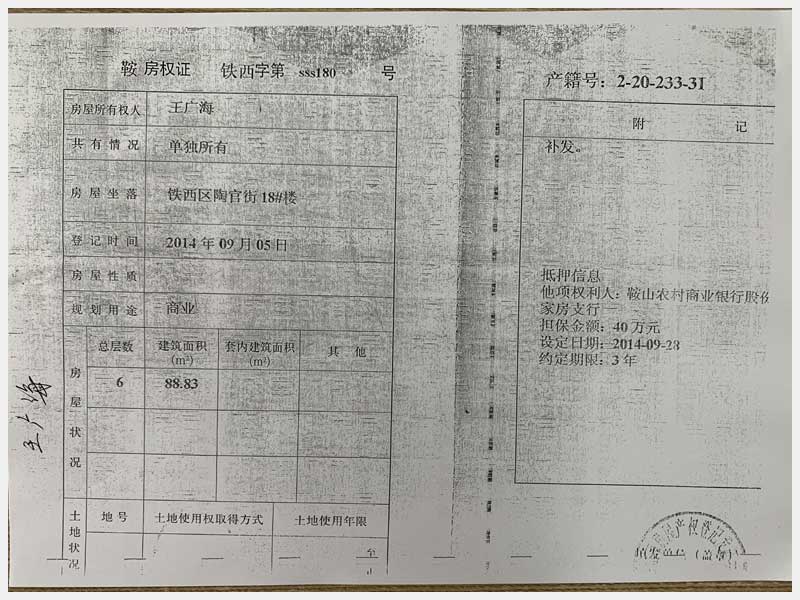 鞍 房权证 铁西字第 sss180 号
房屋所有权人 王广海
共有情况 单独所有
房屋坐落 铁西区陶官街18#楼
登记时间 2014年09月05日
房屋性质
规划用途 商业
房屋状况
总层数 建筑面积(m²) 套内建筑面积(m²) 其他
6 88.83
土地状况
地号 土地使用权取得方式 土地使用年限
至
止
王广海
产籍号：2-20-233-31
附 记
补发。
抵押信息
他项权利人：鞍山农村商业银行股份
家房支行
担保金额：40万元
设定日期：2014-09-28
约定期限：3年
房产权登记
填发单位（盖章）